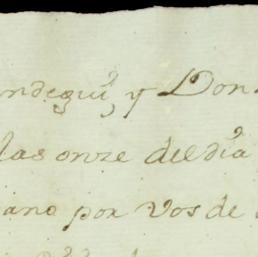 y Don
las onze del dia
ano por vos de